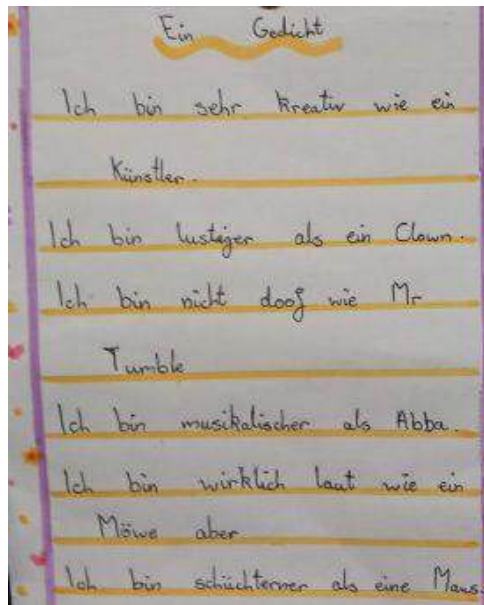 Ein Gedicht
Ich bin sehr kreativ wie ein
Künstler.
Ich bin lustiger als ein Clown.
Ich bin nicht doof wie Mr
Tumble
Ich bin musikalischer als Abba.
Ich bin wirklich laut wie ein
Möwe aber
Ich bin schüchterner als eine Maus.